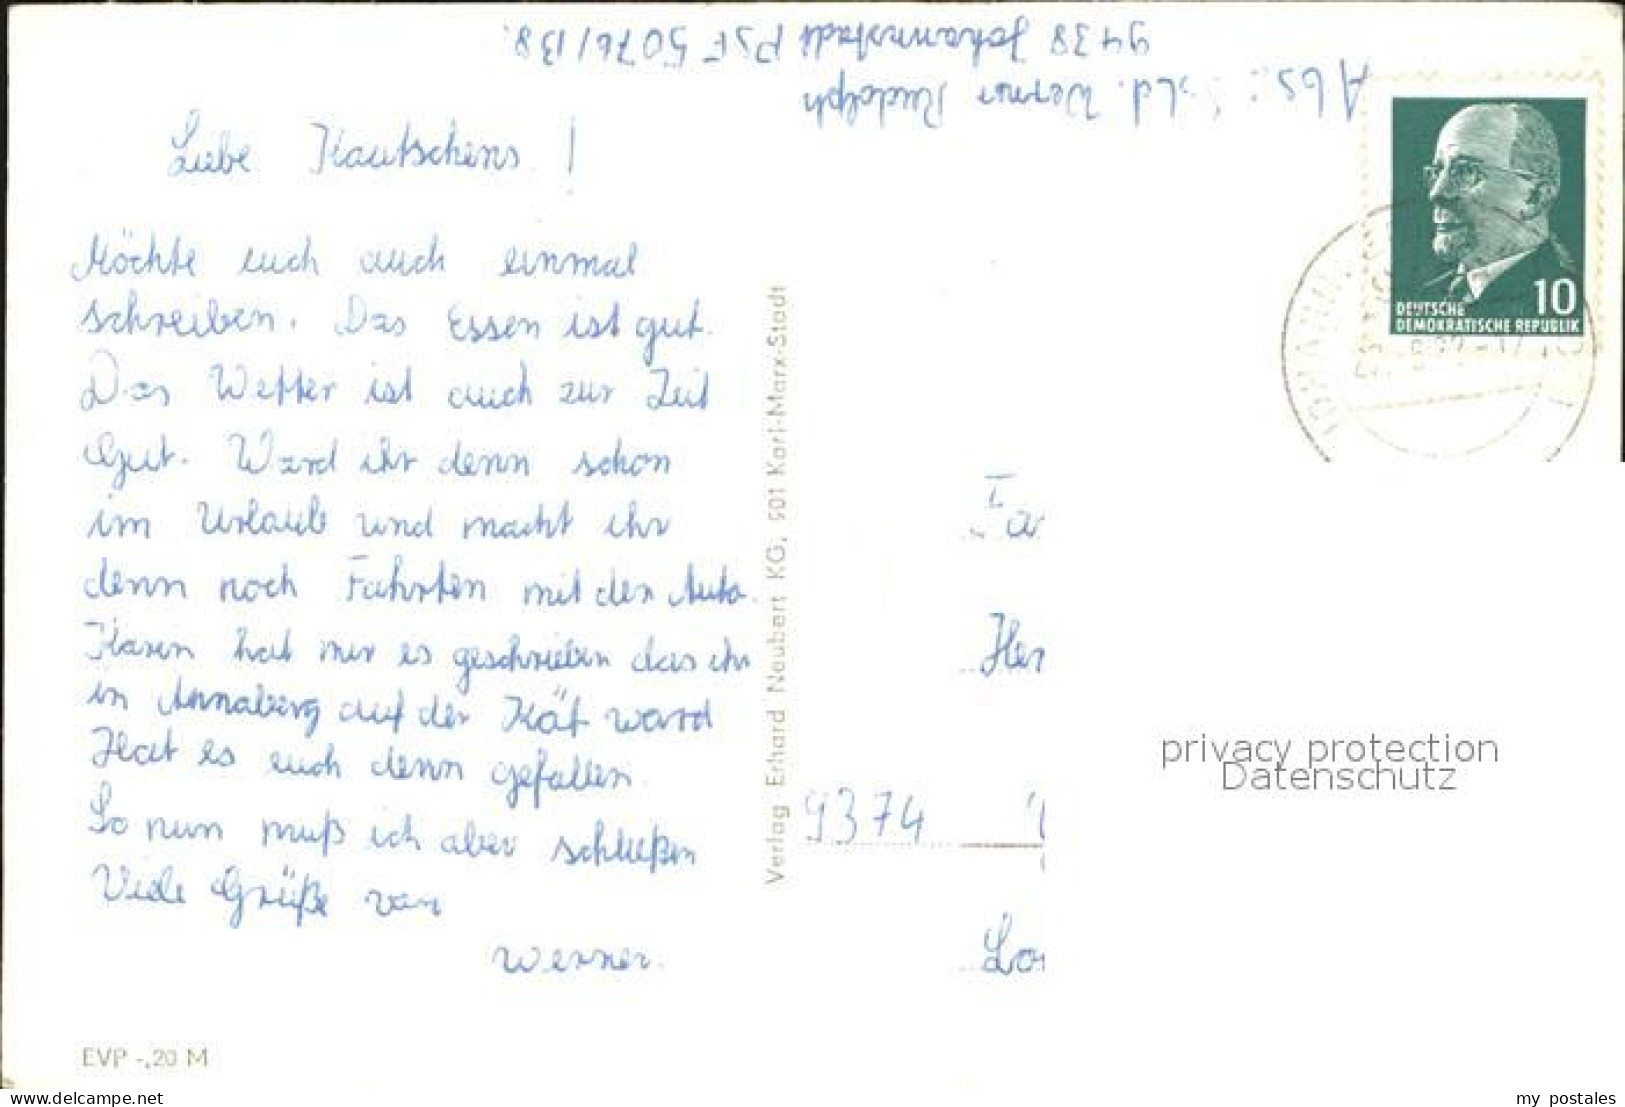 Abs.: Sold. Werner Rudolph
9438 Johannstadt PSF 5076/B8.
Liebe Kautschens !
Möchte euch auch einmal
schreiben. Das Essen ist gut.
Das Wetter ist auch zur Zeit
Gut. Ward ihr denn schon
im Urlaub und macht ihr
denn noch Fahrten mit den Auto.
Karin hat mir es geschrieben das ihr
in Annaberg auf der Kät ward
Hat es euch denn gefallen.
So nun muß ich aber schließen
Viele Grüße von
Werner.
EVP -,20 M
Verlag Erhard Neubert KG, 901 Karl-Marx-Stadt
10
DEUTSCHE
DEMOKRATISCHE REPUBLIK
Fa
Her
9374
Lo
privacy protection
Datenschutz
akpool.com
my postales